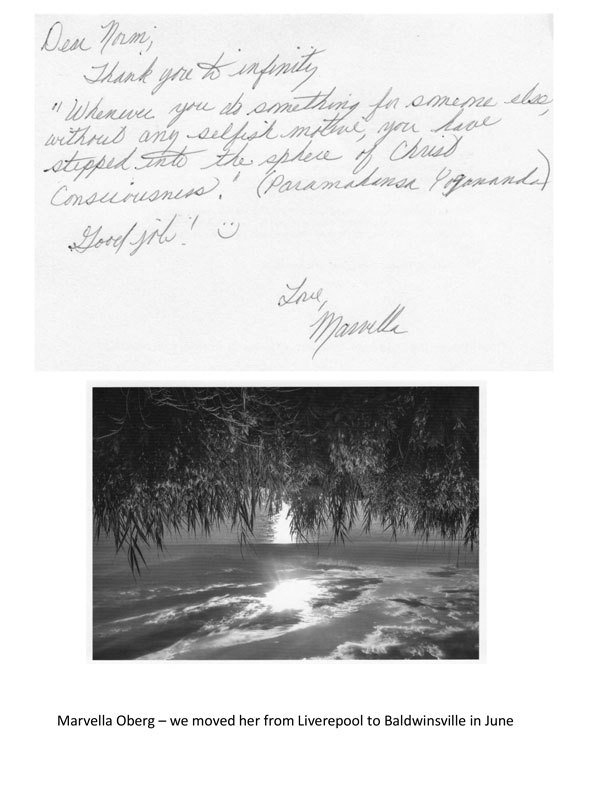 Dear Norm,
Thank you to infinity
"Whenever you do something for someone else,
without any selfish motive, you have
stepped into the sphere of Christ
Consciousness." (Paramahansa Yogananda)
Good job! ☺
Love,
Marvella
Marvella Oberg – we moved her from Liverepool to Baldwinsville in June